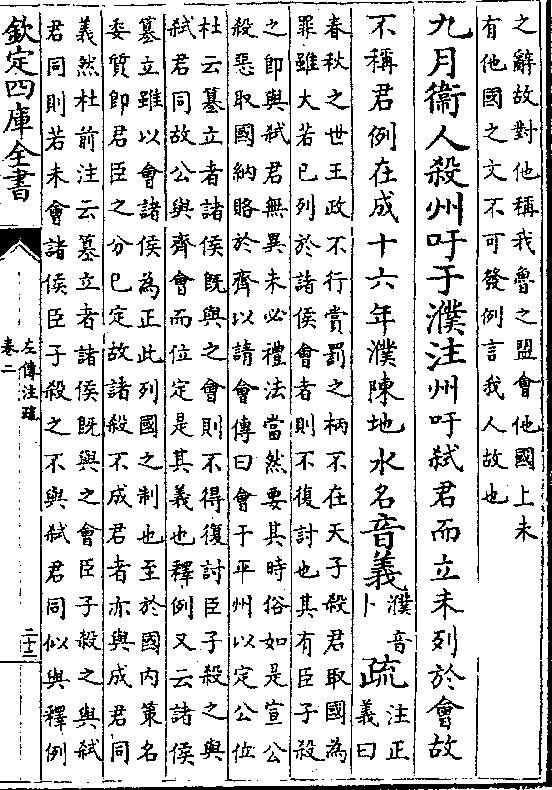 之辭故對他稱我魯之盟會他國上未
有他國之文不可發例言我人故也
九月衞人殺州吁于濮注州吁弑君而立未列於會故
不稱君例在成十六年濮陳地水名音義濮音卜疏注正義曰
春秋之世王政不行賞罰之柄不在天子殺君取國為
罪雖大若已列於諸侯會者則不復討也其有臣子殺
之即與弑君無異未必禮法當然要其時俗如是宣公
殺惡取國納賂於齊以請會傳曰會于平州以定公位
杜云篡立者諸侯既與之會則不得復討臣子殺之與
弑君同故公與齊會而位定是其義也釋例又云諸侯
篡立雖以會諸侯為正此列國之制也至於國内策名
委質即君臣之分已定故諸殺不成君者亦與成君同
義然杜前注云篡立者諸侯既與之會臣子殺之與弑
君同則若未會諸侯臣子殺之不與弑君同似與釋例
欽定四庫全書
左傳注疏
卷二
二十三